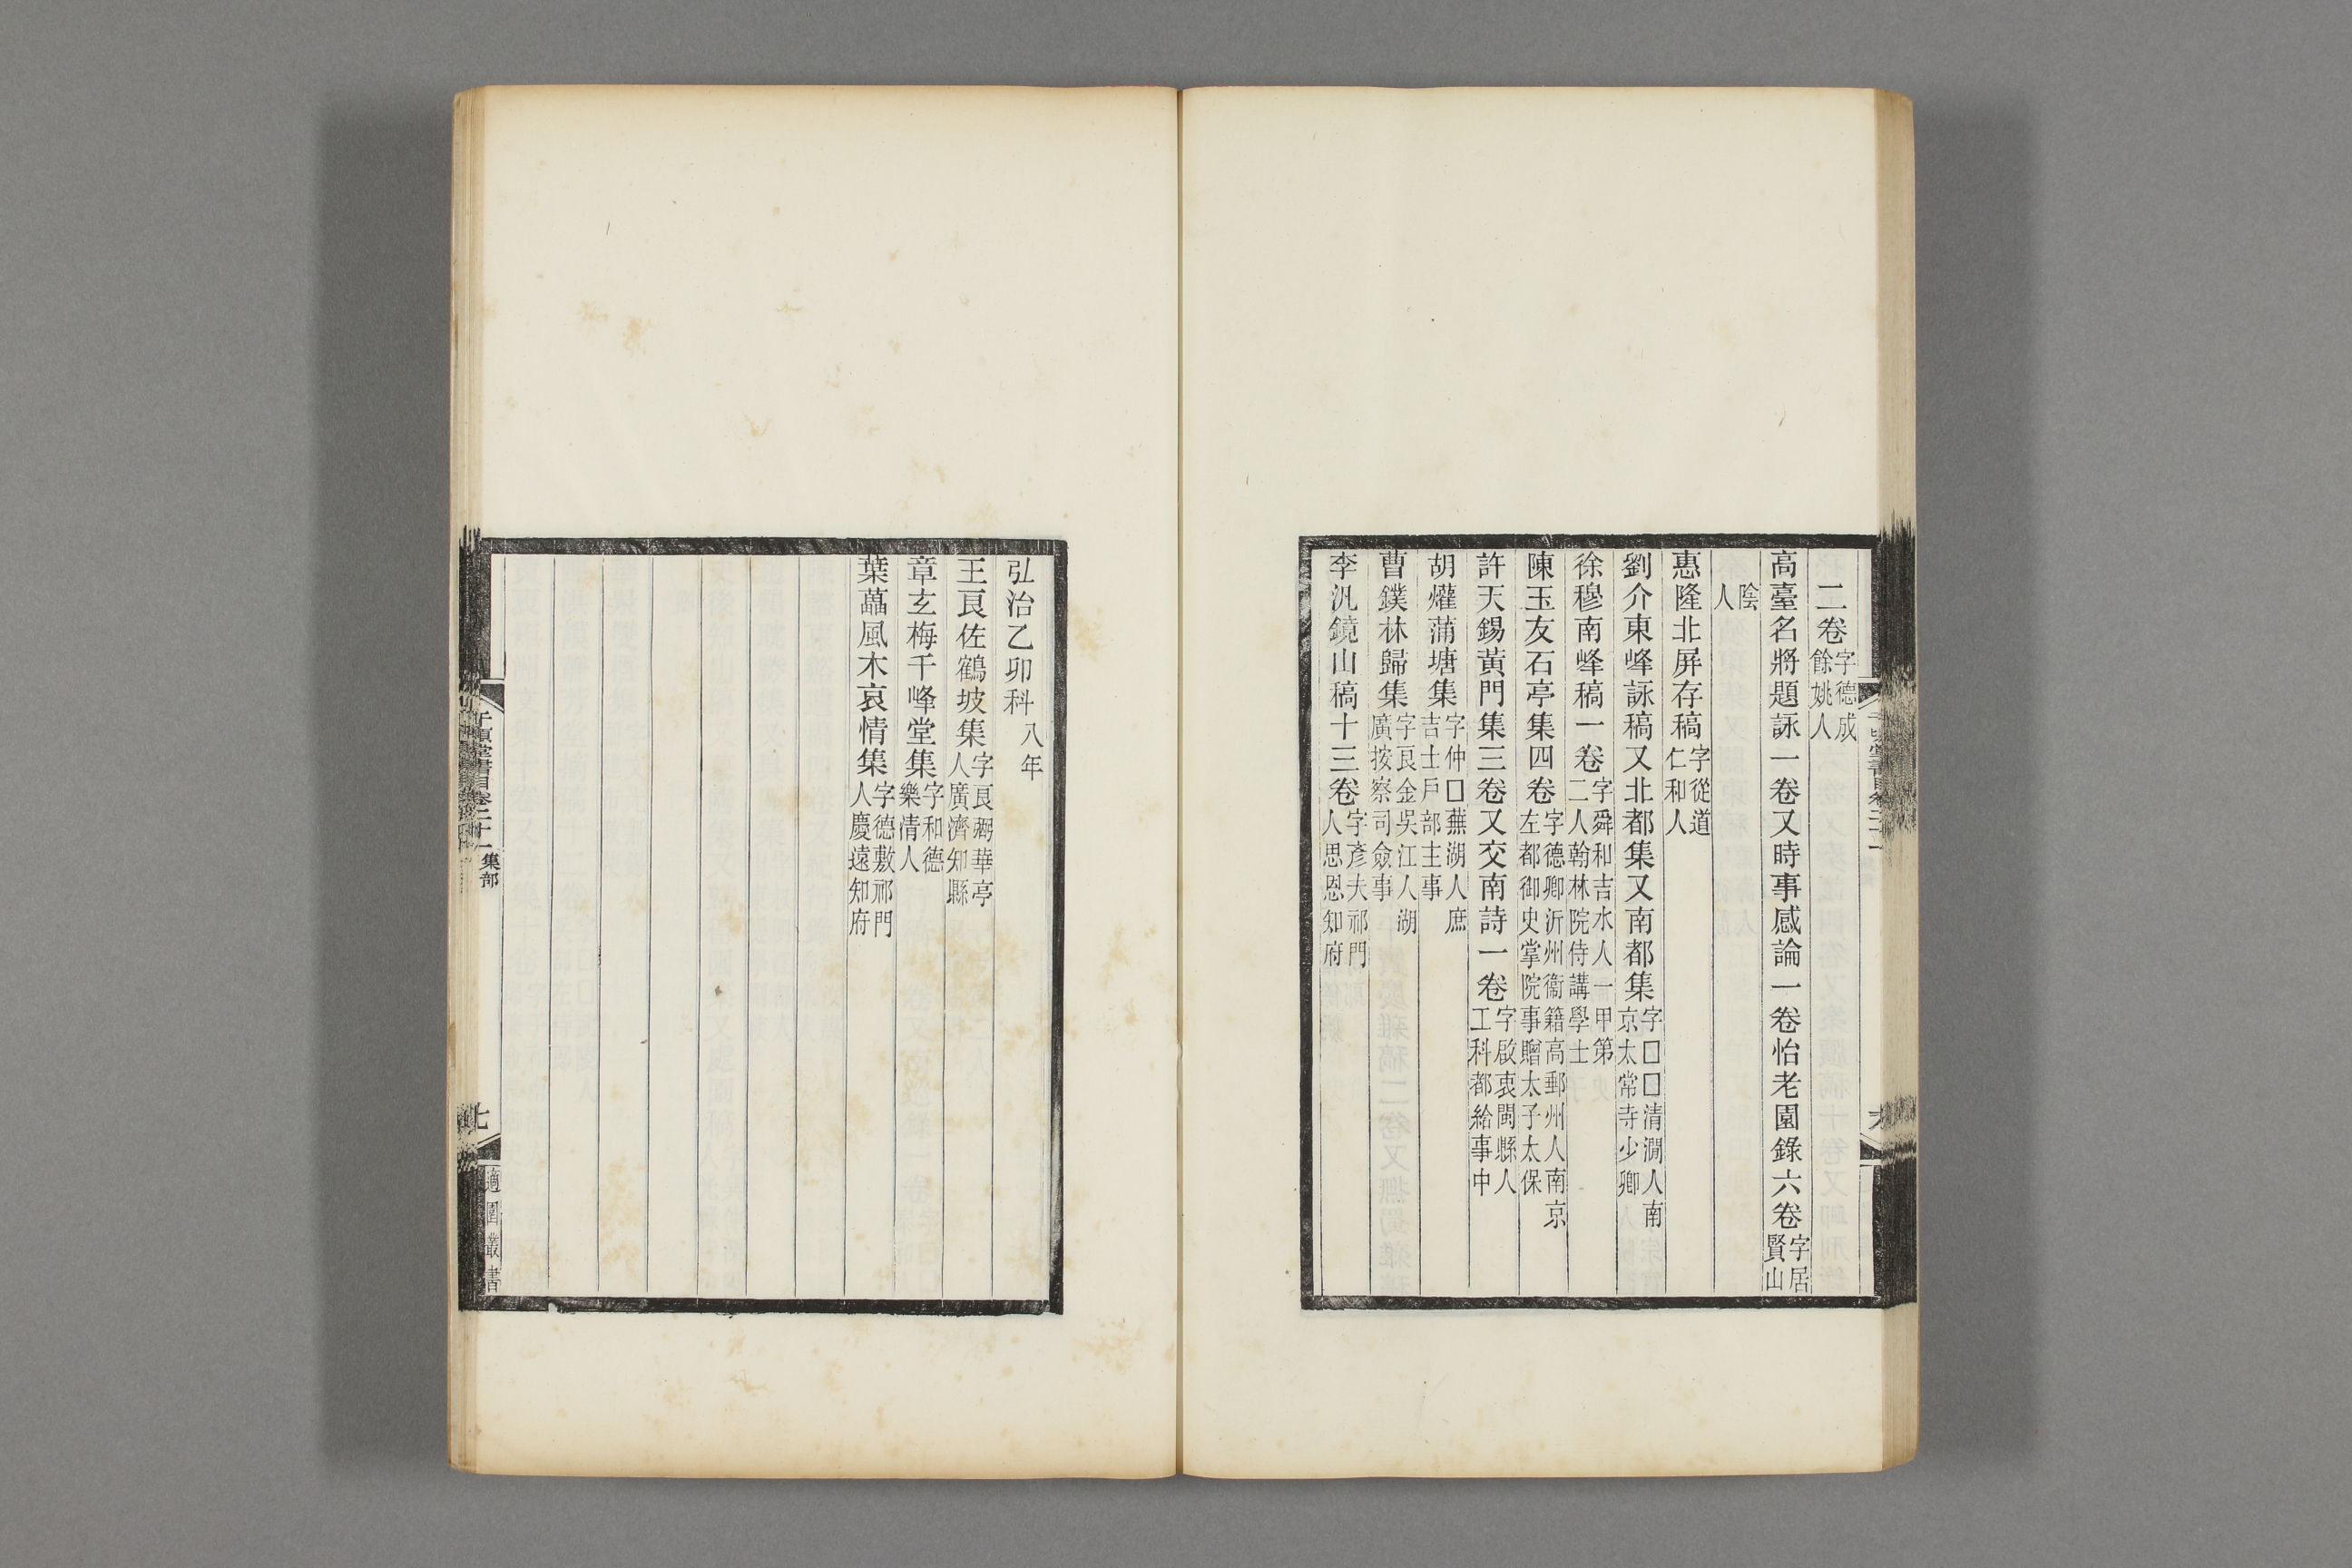 二卷字德成餘姚人
高臺名將題詠一卷又時事感論一卷怡老園錄六卷字居賢山
陰人
惠隆北屏存稿字從道仁和人
劉介東峰詠稿又北都集又南都集字□□清澗人南京太常寺少卿
徐穆南峰稿一卷字舜和吉水人一甲第二人翰林院侍講學士
陳玉友石亭集四卷字德卿沂州衞籍高郵州人南京左都御史掌院事贈太子太保
許天錫黃門集三卷又交南詩一卷字啟衷閩縣人工科都給事中
胡爟蒲塘集字仲□蕪湖人庶吉士戶部主事
曹鏷林歸集字良金吳江人湖廣按察司僉事
李汎鏡山稿十三卷字彥夫祁門人思恩知府
弘治乙卯科八年
王良佐鶴坡集字良弼華亭人廣濟知縣
章玄梅千峰堂集字和德樂清人
葉蕌風木哀情集字德敷祁門人慶遠知府
千頃堂書目卷二十一 集部
七
適園叢書